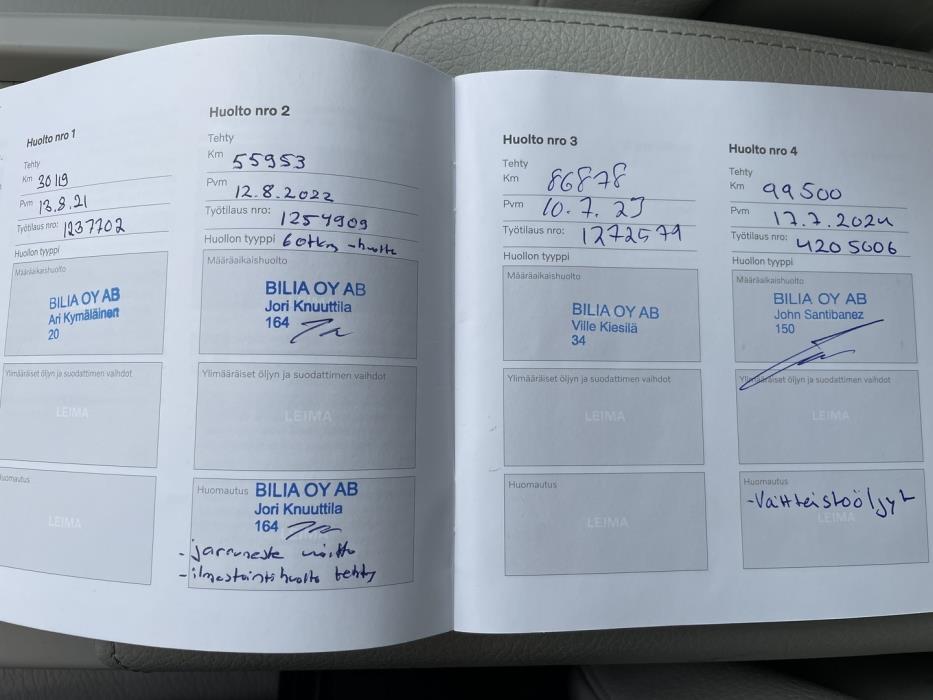 Huolto nro 1
Tehty
Km 30119
Pvm 13.8.21
Työtilaus nro: 1237702
Huollon tyyppi
Määräaikaishuolto
BILIA OY AB
Ari Kymäläinen
20
Ylimääräiset öljyn ja suodattimen vaihdot
LEIMA
Huomautus
LEIMA
Huolto nro 2
Tehty
Km 55953
Pvm 12.8.2022
Työtilaus nro: 1254909
Huollon tyyppi 60tkm -huolto
Määräaikaishuolto
BILIA OY AB
Jori Knuuttila
164
Ylimääräiset öljyn ja suodattimen vaihdot
LEIMA
Huomautus BILIA OY AB
Jori Knuuttila
164
- jarruneste vaihto
- ilmastointihuolto tehty
Huolto nro 3
Tehty
Km 86878
Pvm 10.7.23
Työtilaus nro: 1272579
Huollon tyyppi
Määräaikaishuolto
BILIA OY AB
Ville Kiesilä
34
Ylimääräiset öljyn ja suodattimen vaihdot
LEIMA
Huomautus
LEIMA
Huolto nro 4
Tehty
Km 99500
Pvm 17.7.2024
Työtilaus nro: 4205606
Huollon tyyppi
Määräaikaishuolto
BILIA OY AB
John Santibanez
150
Ylimääräiset öljyn ja suodattimen vaihdot
LEIMA
Huomautus
-Vaihteistoöljyt
LEIMA